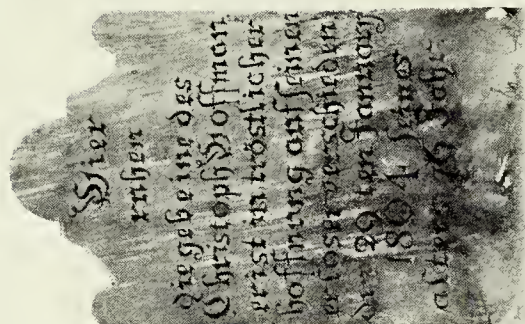 Hier
ruhen
die gebeine des
Christoph Hoffman
er ist in tröstlicher
hoffnung auf seinen
erlöser verschieden
den 29 ten January
1804 seines
alters Jahr